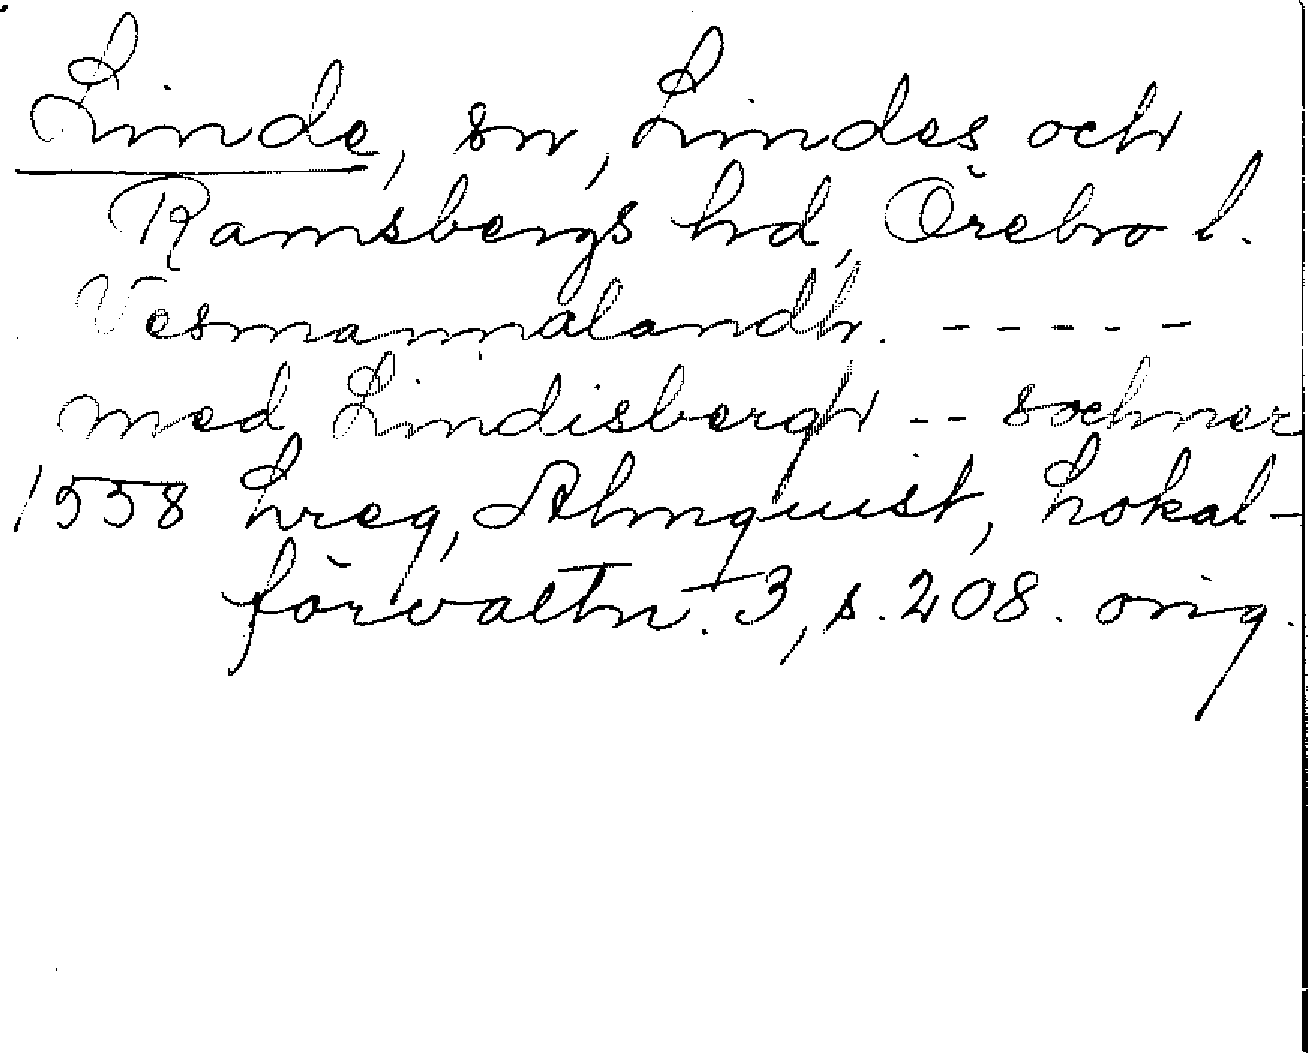 Linde, sn, Lindes och
Ramsbergs hd, Örebro l.
Vesmannalandh. -----
med Lindisbergh -- sochner
1558 Lreg, Almquist, Lokal-
förvaltn. 3, s. 208. orig.